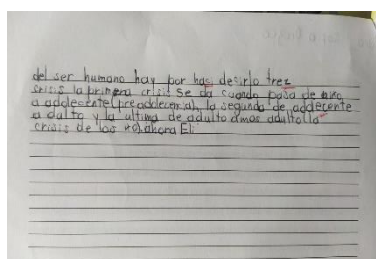 del ser humano hay por haci desirlo tres
crisis la primera crisis se da cuando pasa de niño
a addecente(preaddecencia), la segunda de addecente
a dalto y la ultima de adulto a mas adulto la
crisis de los ahora Eli